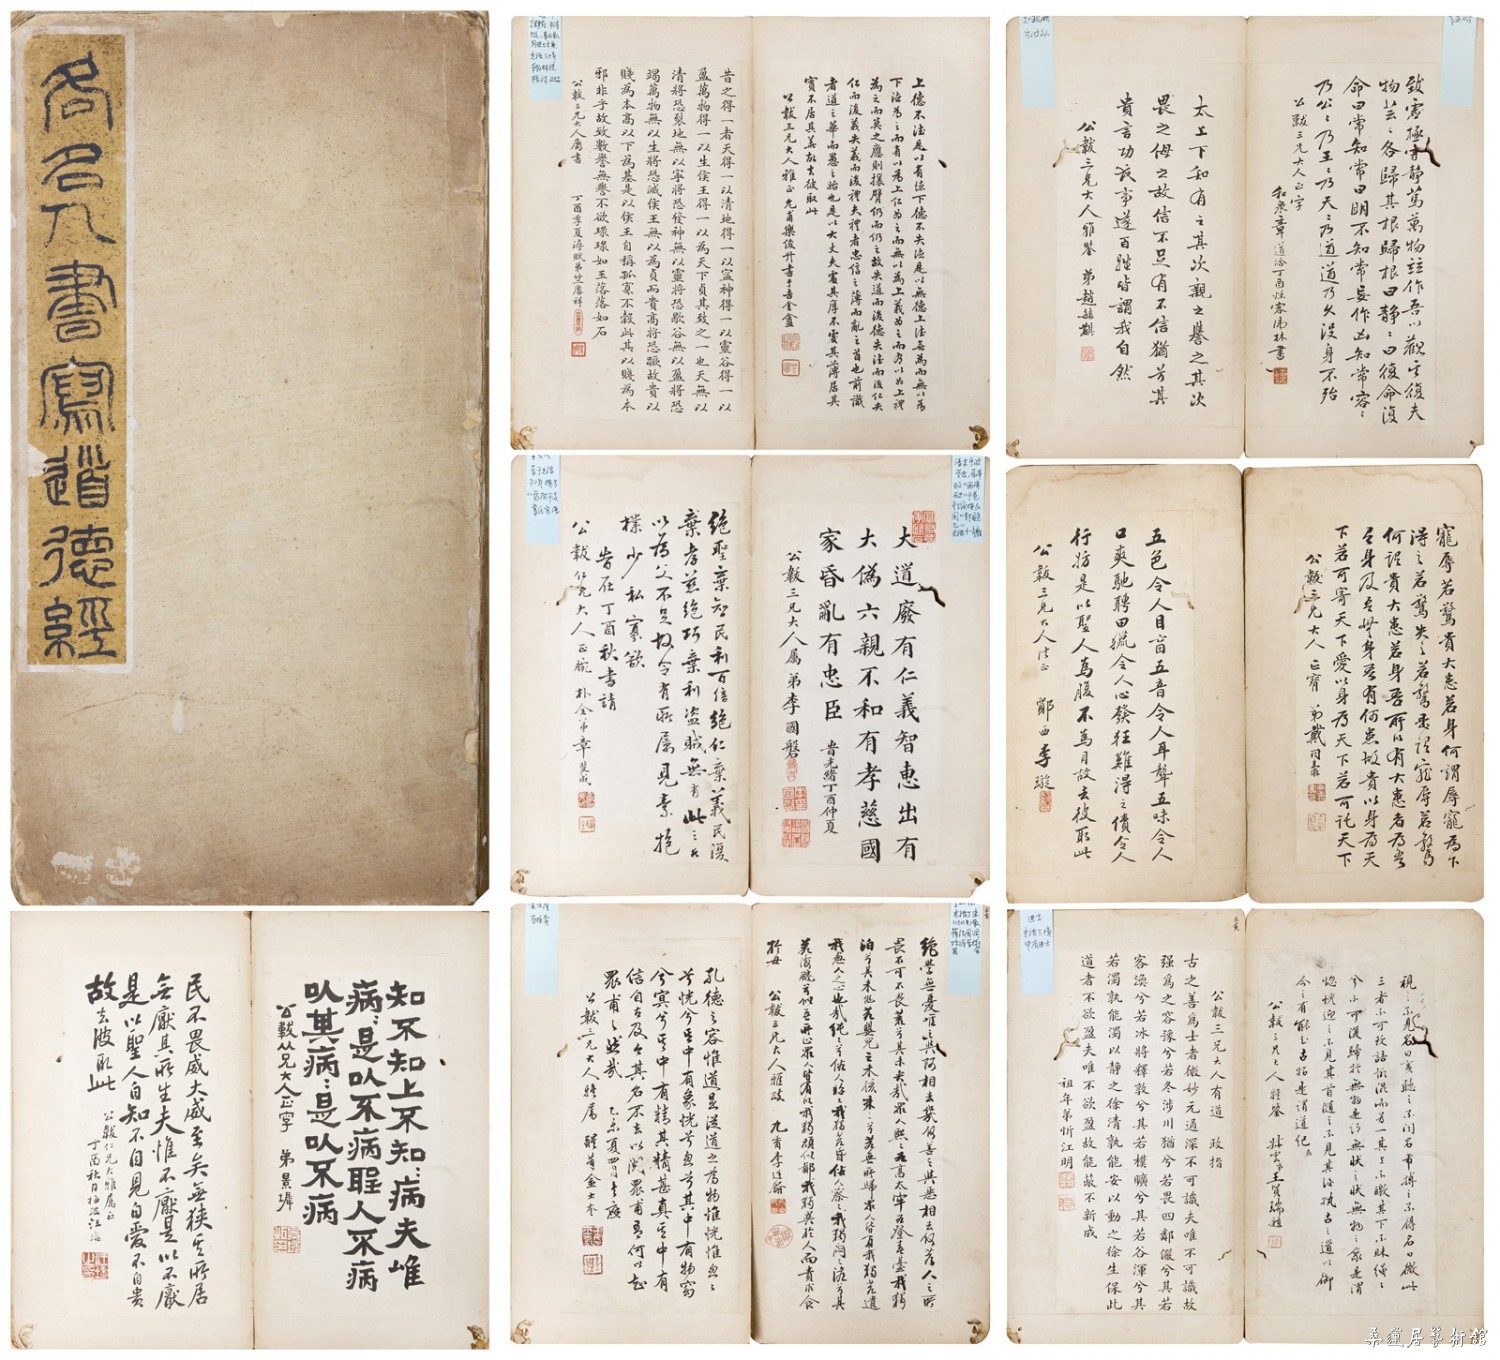 各名人書寫道德經
上德不德是以有德下德不失德是以無德上德無為而無以為
下德為之而有以為上仁為之而無以為上義為之而有以為上禮
為之而莫之應則攘臂仍而仍之故失道而後德失德而後仁失
仁而後義失義而後禮夫禮者忠信之薄而亂之首也前識
者道之華而愚之始也是以大丈夫處其厚不處其薄居其
實不居其華故去彼取此
公穀三兄大人雅正
昔之得一者天得一以清地得一以寧神得一以靈谷得一以
盈萬物得一以生侯王得一以為天下貞其致之一也天無以
清將恐裂地無以寧將恐發神無以靈將恐歇谷無以盈將恐
竭萬物無以生將恐滅侯王無以為貞而貴高將恐蹶故貴以
賤為本高以下為基是以侯王自稱孤寡不穀此其以賤為本
邪非乎故致數譽無譽不欲琭琭如玉落落如石
公穀三兄大人屬書
致虛極守靜篤萬物竝作吾以觀其復夫
物芸芸各歸其根歸根曰靜靜曰復命復
命曰常知常曰明不知常妄作凶知常容容
乃公公乃王王乃天天乃道道乃久沒身不殆
公穀三兄大人正字
太上下知有之其次親之譽之其次
畏之侮之故信不足有不信猶兮其
貴言功成事遂百姓皆謂我自然
公穀三兄大人雅鑒
大道廢有仁義智惠出有
大偽六親不和有孝慈國
家昏亂有忠臣 昔光緒丁酉仲夏
公穀三兄大人属 弟李國磐
絕聖棄知民利百倍絕仁棄義民復
棄孝慈絕巧棄利盜賊無有此三者
以為文不足故令有所屬見素抱
樸少私寡欲
昔在丁酉秋書請
公穀仁兄大人正腕
寵辱若驚貴大患若身何謂辱寵為下
得之若驚失之若驚是謂寵辱若驚
何謂貴大患若身吾所以有大患者為吾
有身及吾無身吾有何患故貴以身為天
下若可寄天下愛以身為天下若可託天下
公穀三兄大人正寶
五色令人目盲五音令人耳聾五味令人
口爽馳騁田獵令人心發狂難得之貨令人
行妨是以聖人為腹不為目故去彼取此
公穀三兄大人法正 鄖西李璇
知不知上不知知病夫唯
病病是以不病聖人不病
以其病病是以不病
公穀從兄大人正字 弟景墀
民不畏威大威至矣無狹其所居
無厭其所生夫惟不厭是以不厭
是以聖人自知不自見自愛不自貴
故去彼取此
公穀仁兄大雅屬正
絕學無憂唯之與阿相去幾何善之與惡相去何若人之所
畏不可不畏荒兮其未央哉眾人熙熙如享太牢如登春臺我獨
泊兮其未兆若嬰兒之未孩乘乘兮若無所歸眾人皆有餘我獨若遺
公穀三兄大人雅政
孔德之容惟道是從道之為物惟恍惟惚
兮恍兮其中有象恍兮惚兮其中有物窈
兮冥兮其中有精其精甚真其中有
信自古及今其名不去以閱眾甫吾何以知
眾甫之然哉
視之不見名曰夷聽之不聞名希搏之不得名曰微此
三者不可致詰故混而為一其上不皦其下不昧繩繩
兮不可復歸於無物是謂無狀之狀無物之象是謂
惚恍迎之不見其首隨之不見其後執古之道以御
今之有能知古始是謂道紀
公穀三兄大人雅鑒
古之善為士者微妙元通深不可識夫唯不可識故
强為之容豫兮若冬涉川猶兮若畏四鄰儼兮其若
客渙兮若冰將釋敦兮其若樸曠兮其若谷渾兮其
若濁孰能濁以靜之徐清孰能安以動之徐生保此
道者不欲盈夫唯不欲盈故能蔽不新成
公穀三兄大人有道 政指
祖年弟忻江明
桑蓮居藝術館